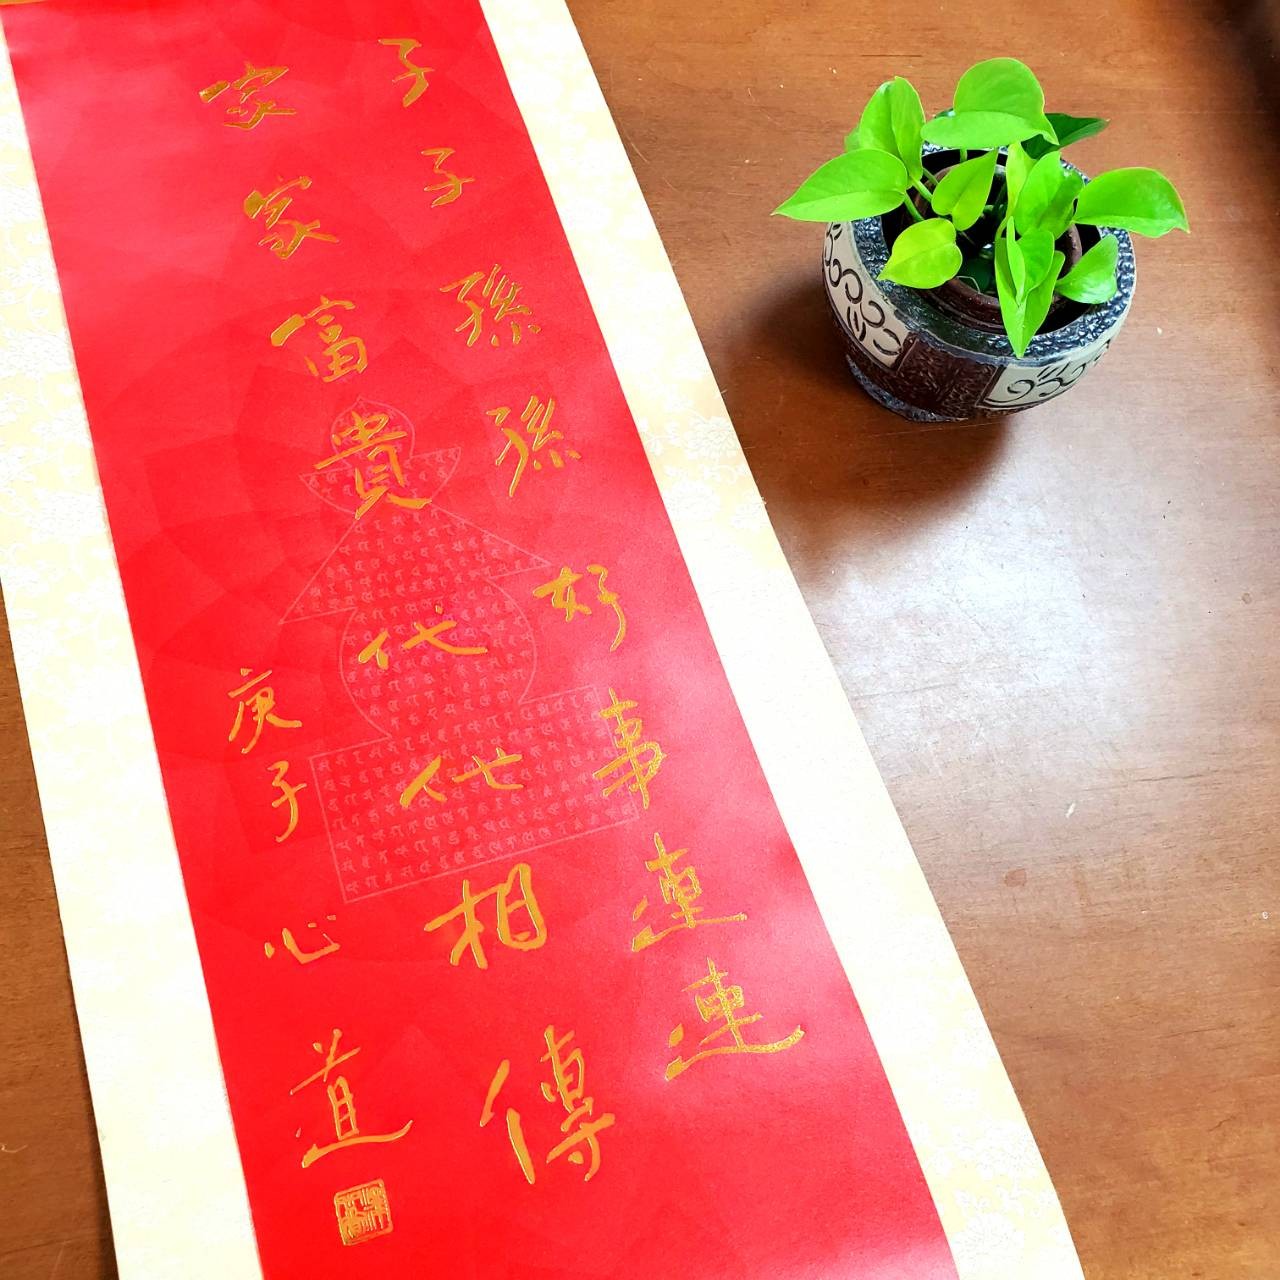 子子孫孫好事連連
家家富貴代代相傳
庚子心道